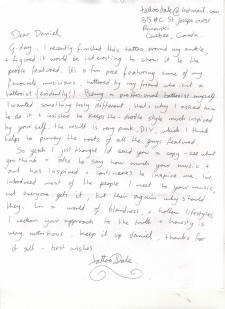 tattoodale@hotmail.com
Quebec, Canada.
Dear Daniel,
G-day, I recently finished this tattoo around my ankle,
& figured it would be interesting to show it to the
people featured. It's a fun piece featuring some of my
favourite musicians, tattooed by my friend who isn't a
tattooist (evidently!) Being a professional tattooist myself
I wanted something truly different, that's why I asked him
to do it & insisted he keeps the doodle style much inspired
by your self. The result is very punk, D.I.Y, which I think
helps to convey the roots of all the guys featured.
So yeah I just thought I'd send you a copy - see what
you think & also to say how much your music &
art has inspired & continues to inspire me. I've
introduced most of the people I meet to your music,
not everyone gets it, but then again why should
they. In a world of blandness & hollow lifestyles
I reckon your approach to the truth & honesty is
very victorious. Keep it up Daniel, thanks for
it all - best wishes.
Tattoo Dale